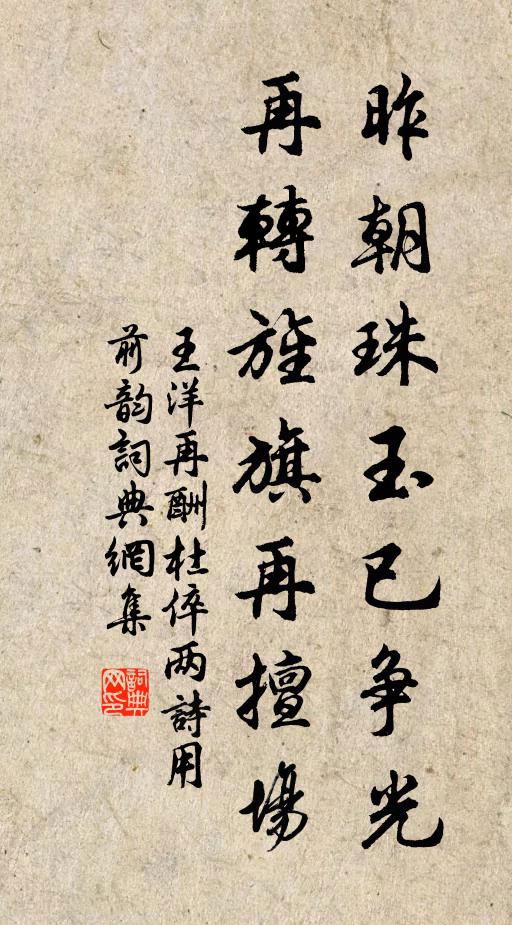 昨朝珠玉已争光
再轉旌旗再擅場
王洋再酬杜倅两詩用
前韵詞典網集
詞典
网印